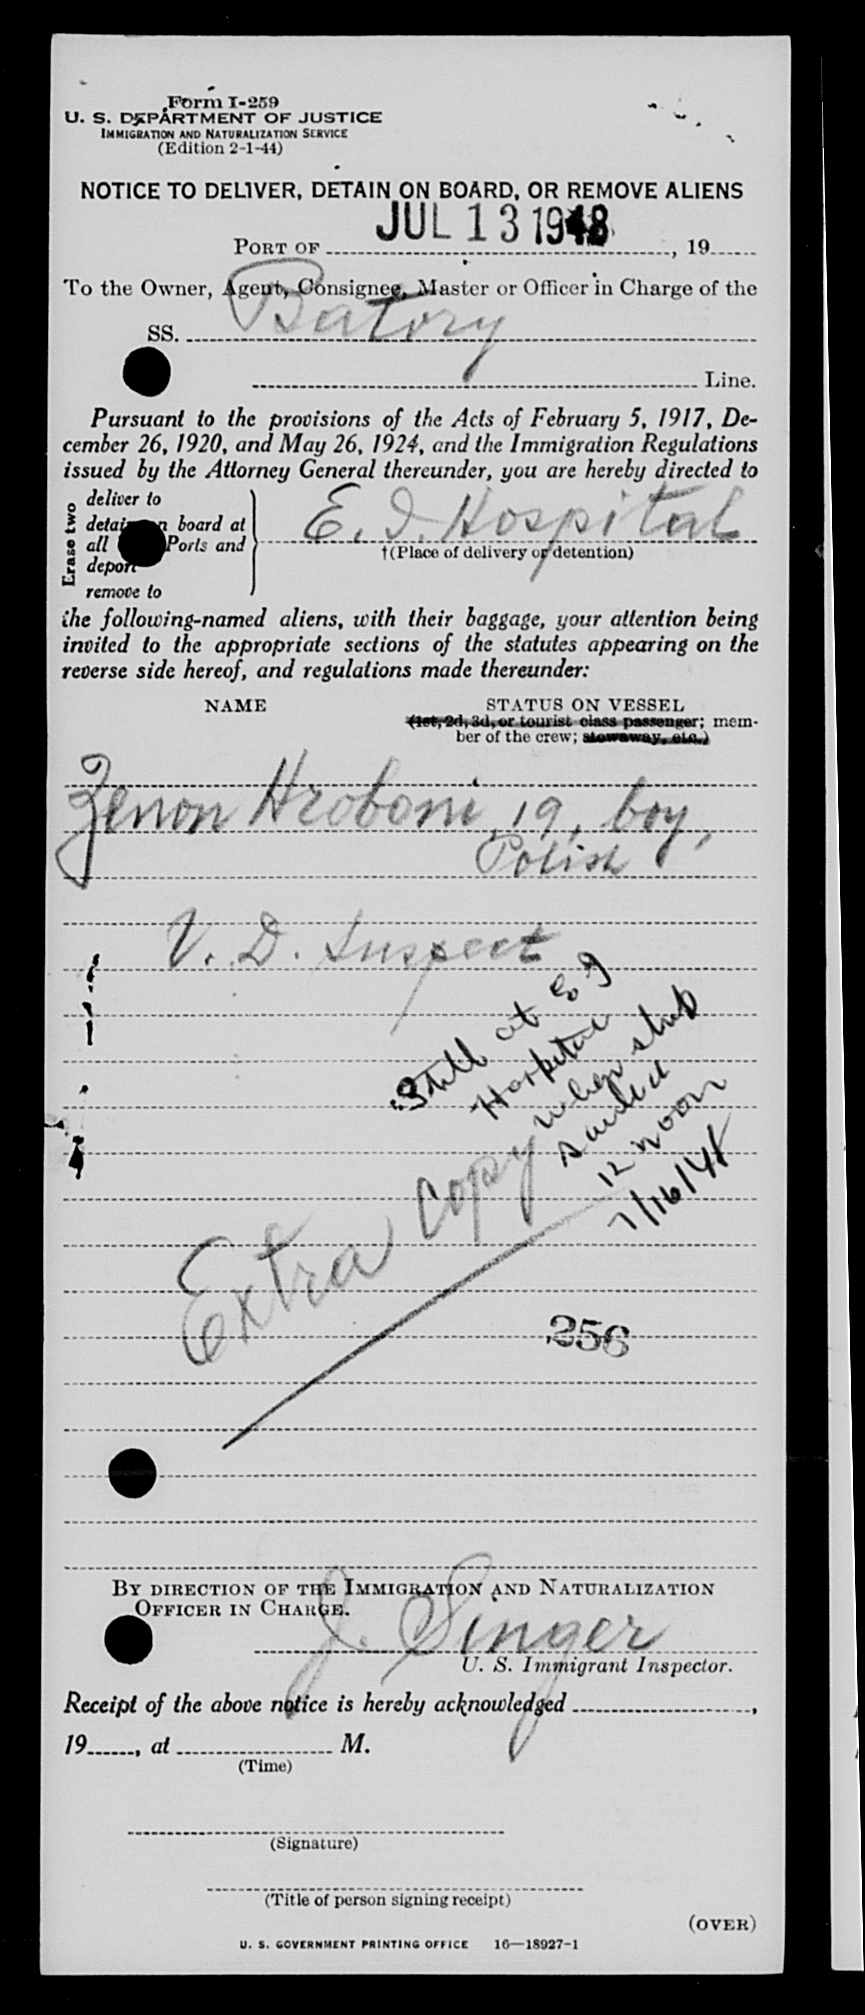 Form I-259
U. S. DEPARTMENT OF JUSTICE
IMMIGRATION AND NATURALIZATION SERVICE
(Edition 2-1-44)
NOTICE TO DELIVER, DETAIN ON BOARD, OR REMOVE ALIENS
JUL 13 1948
PORT OF , 19
To the Owner, Agent, Consignee, Master or Officer in Charge of the
SS. Batory
Line.
Pursuant to the provisions of the Acts of February 5, 1917, De-
cember 26, 1920, and May 26, 1924, and the Immigration Regulations
issued by the Attorney General thereunder, you are hereby directed to
Erase two
deliver to
board at
all Ports and
deport
remove to
E. I. Hospital
†(Place of delivery or detention)
the following-named aliens, with their baggage, your attention being
invited to the appropriate sections of the statutes appearing on the
reverse side hereof, and regulations made thereunder:
NAME STATUS ON VESSEL
(1st, 2d, 3d, or tourist class passenger; mem-
ber of the crew; stowaway, etc.)
Zenon Hroboni, 19, boy,
Polish
V. D. Suspect
Still at E I
Hospital
when ship
sailed
12 noon
7/16/48
Extra Copy
256
BY DIRECTION OF THE IMMIGRATION AND NATURALIZATION
OFFICER IN CHARGE.
J. Singer
U. S. Immigrant Inspector.
Receipt of the above notice is hereby acknowledged ,
19 , at M.
(Time)
(Signature)
(Title of person signing receipt)
(OVER)
U. S. GOVERNMENT PRINTING OFFICE 16—18927-1